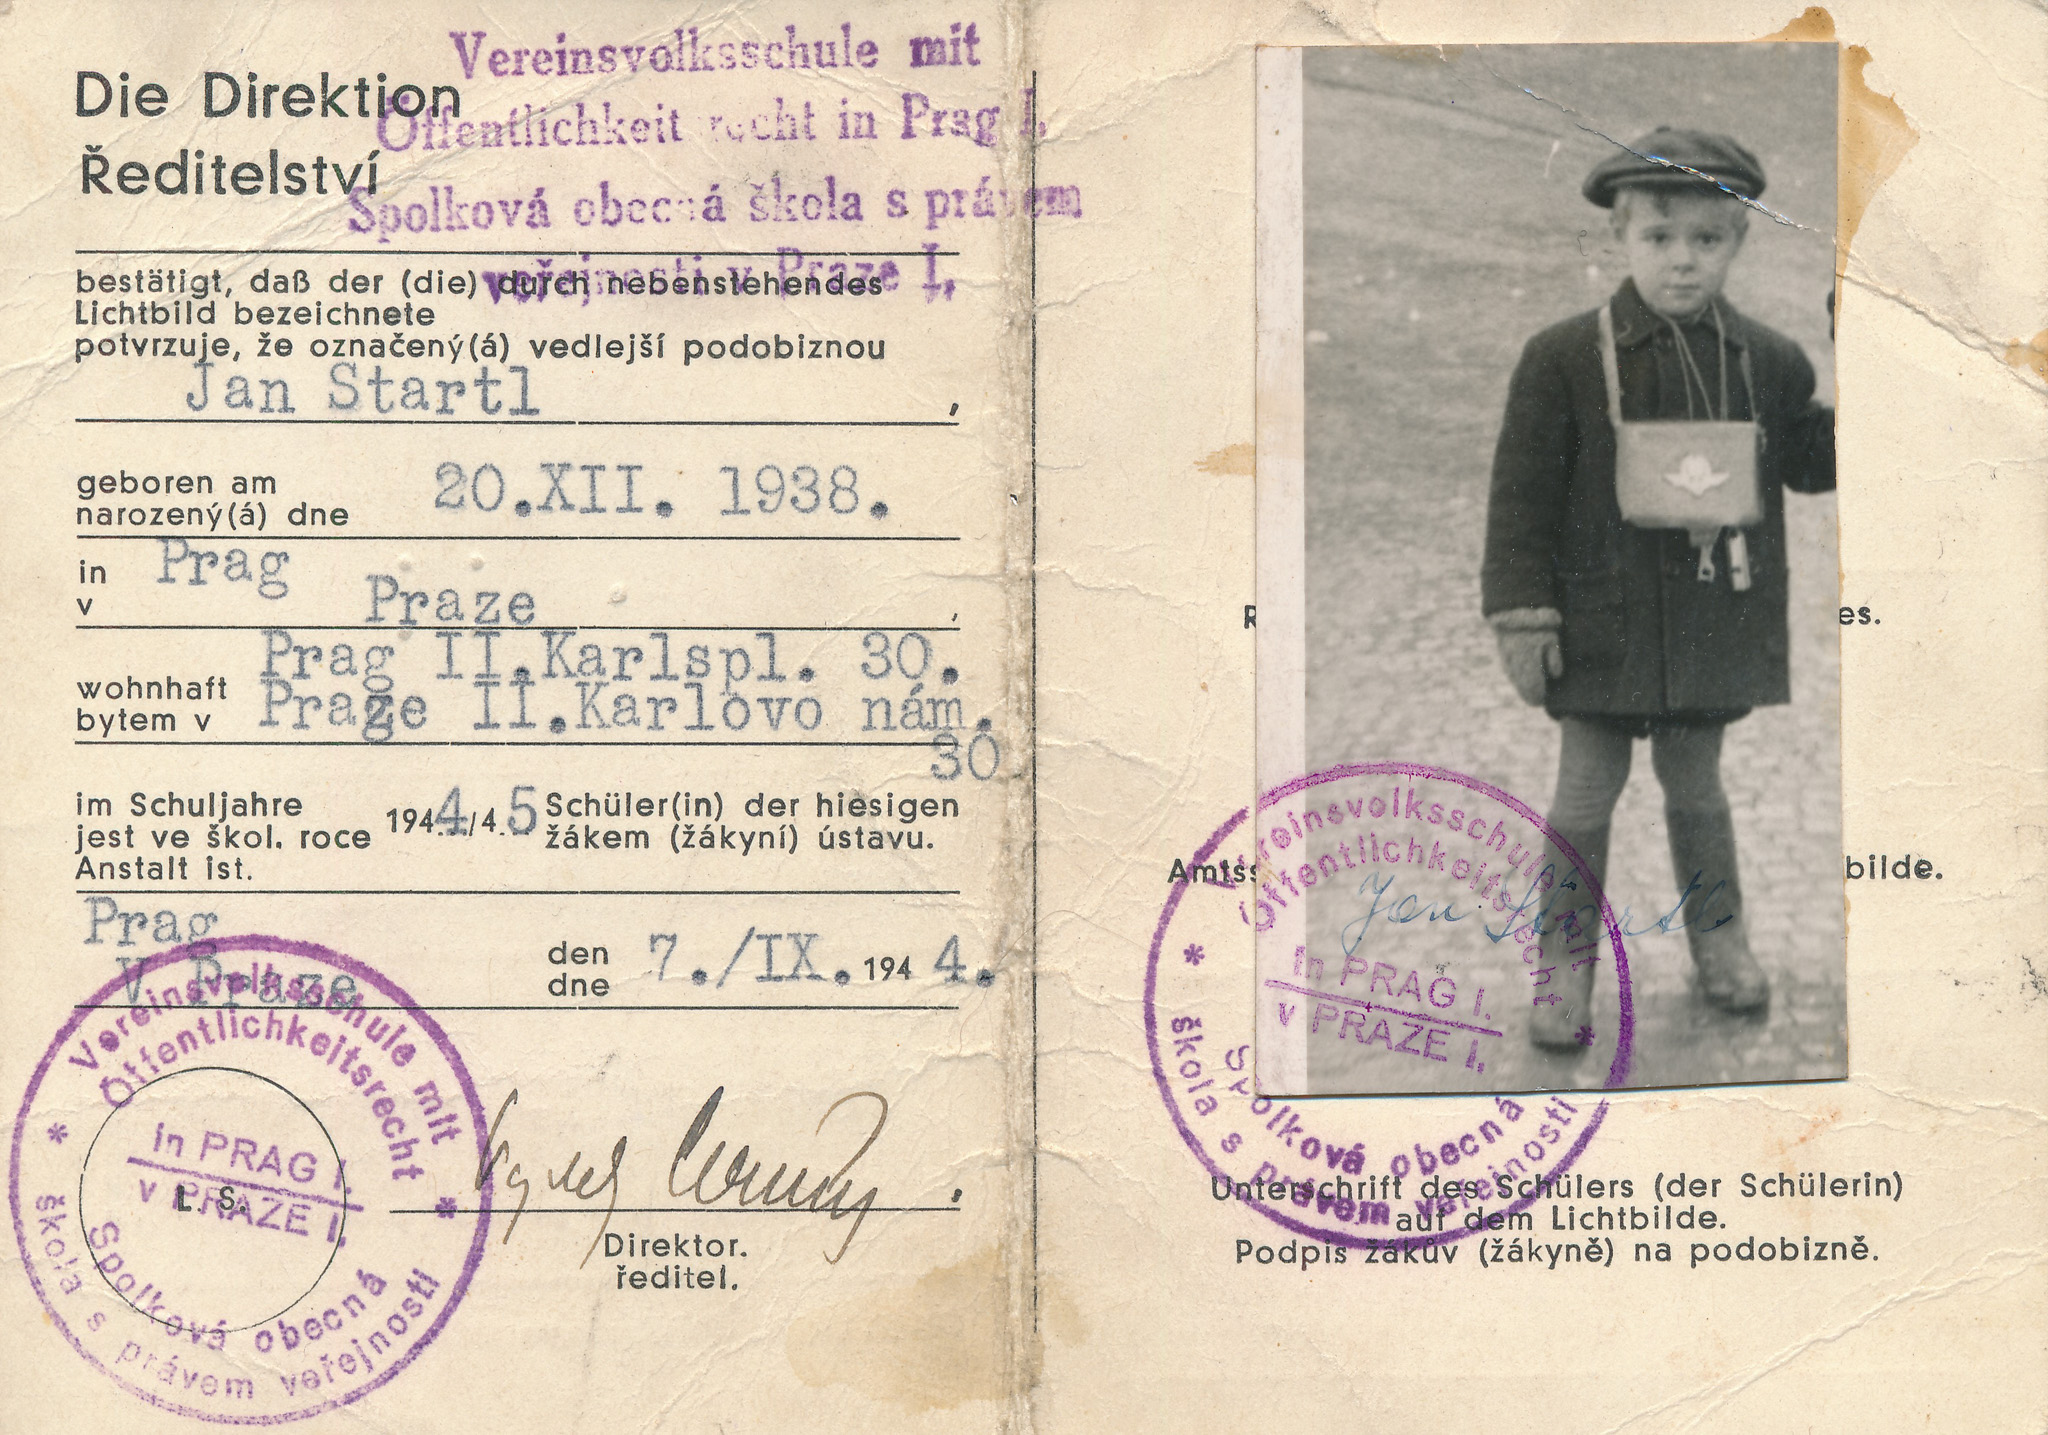 Vereinsvolksschule mit
Öffentlichkeit recht in Prag I.
Spolková obecná škola s právem
veřejnosti v Praze I.
Die Direktion
Ředitelství
bestätigt, daß der (die) durch nebenstehendes
Lichtbild bezeichnete
potvrzuje, že označený(á) vedlejší podobiznou
Jan Startl,
geboren am
narozený(á) dne 20.XII. 1938.
in Prag
v Praze,
wohnhaft Prag II.Karlspl. 30.
bytem v Praze II.Karlovo nám.
30.
im Schuljahre 1944/45 Schüler(in) der hiesigen
jest ve škol. roce žákem (žákyní) ústavu.
Anstalt ist.
Prag den
V Praze dne 7./IX. 1944.
Vereinsvolksschule mit
Öffentlichkeitsrecht
in PRAG I.
v PRAZE I.
Spolková obecná
* škola s právem veřejnosti *
L. S.
Direktor.
ředitel.
es.
Amtss bilde.
Vereinsvolksschule mit
Öffentlichkeitsrecht
Jan Startl
in PRAG I.
v PRAZE I.
Spolková obecná
* škola s právem veřejnosti *
Unterschrift des Schülers (der Schülerin)
auf dem Lichtbilde.
Podpis žákův (žákyně) na podobizně.